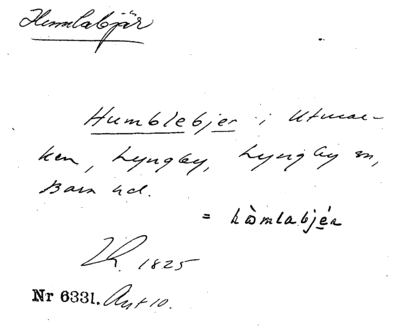 Humlabjär
Humblebjer i Utmar-
ken, Lyngby, Lyngby sn,
Bara hd.
= hòmlabjéa
1825
Nr 6331. Ant 10.